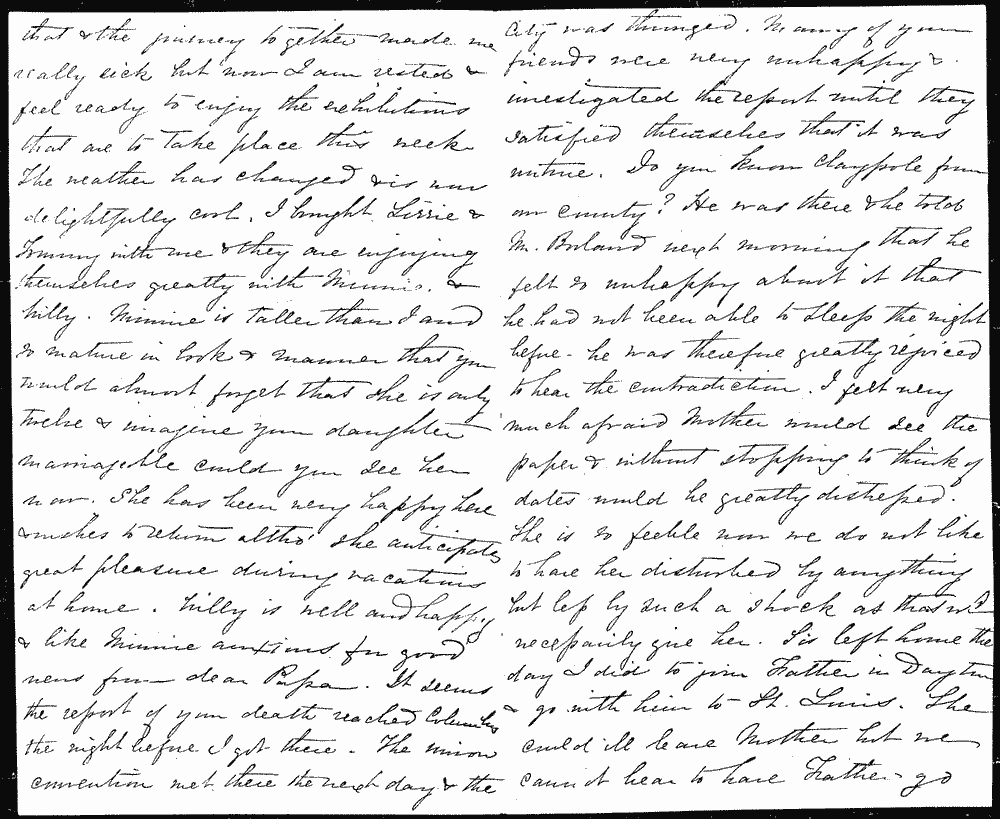 that & the journey together made me
really sick but now I am rested &
feel ready to enjoy the exhibitions
that are to take place this week
The weather has changed & is now
delightfully cool. I bought Lizzie &
Tommy with me & they are enjoying
themselves greatly with Minnie &
Willy. Minnie is taller than I and
so mature in look & manner that you
would almost forget that she is only
twelve & imagine your daughter
marriageable could you see her
now. She has been very happy here
& wishes to return altho' she anticipates
great pleasure during vacations
at home. Willy is well and happy
& like Minnie anxious for good
news from dear Papa. It seems
the report of your death reached Columbus
the night before I got there. The union
convention met there the next day & the
City was thronged. Many of your
friends were very unhappy &
investigated the report until they
satisfied themselves that it was
untrue. Do you know Claypole from
our county? He was there & he told
M. Borland next morning that he
felt so unhappy about it that
he had not been able to sleep the night
before - he was therefore greatly rejoiced
to hear the contradiction. I felt very
much afraid Mother would see the
paper & without stopping to think of
dates would be greatly distressed.
She is so feeble now we do not like
to have her disturbed by anything
but less by such a shock as that wd
necessarily give her. Sis left home the
day I did to join Father in Dayton
& go with him to St. Louis. She
could ill leave Mother but we
cannot bear to have Father go